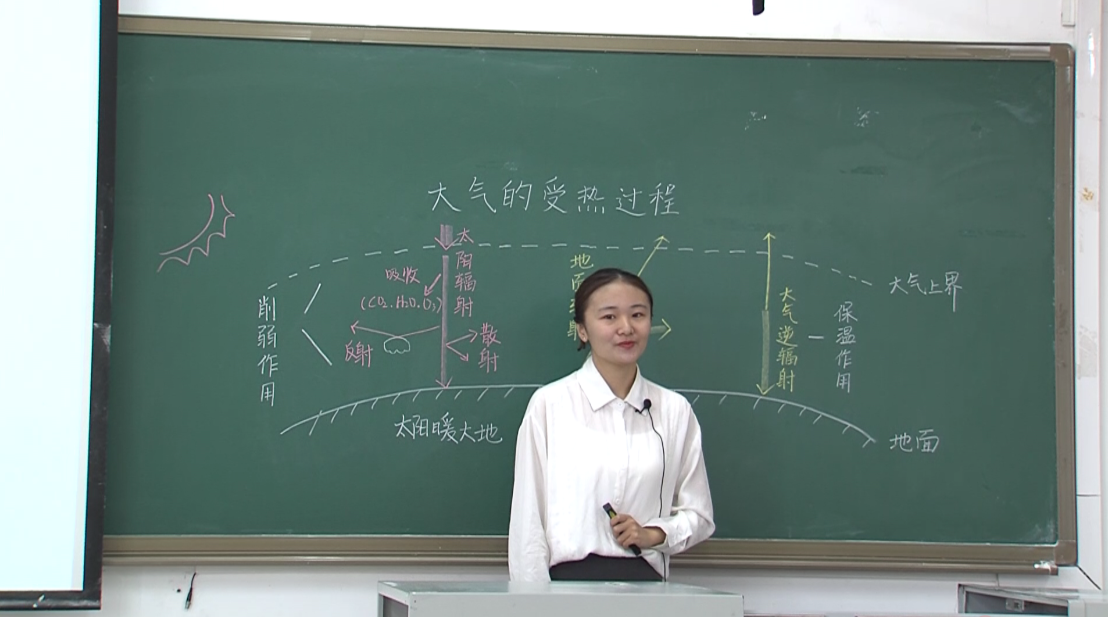 大气的受热过程
太阳辐射
吸收
(CO₂.H₂O.O₃)
反射
散射
削弱作用
地面
射
大气逆辐射
保温作用
大气上界
太阳暖大地
地面